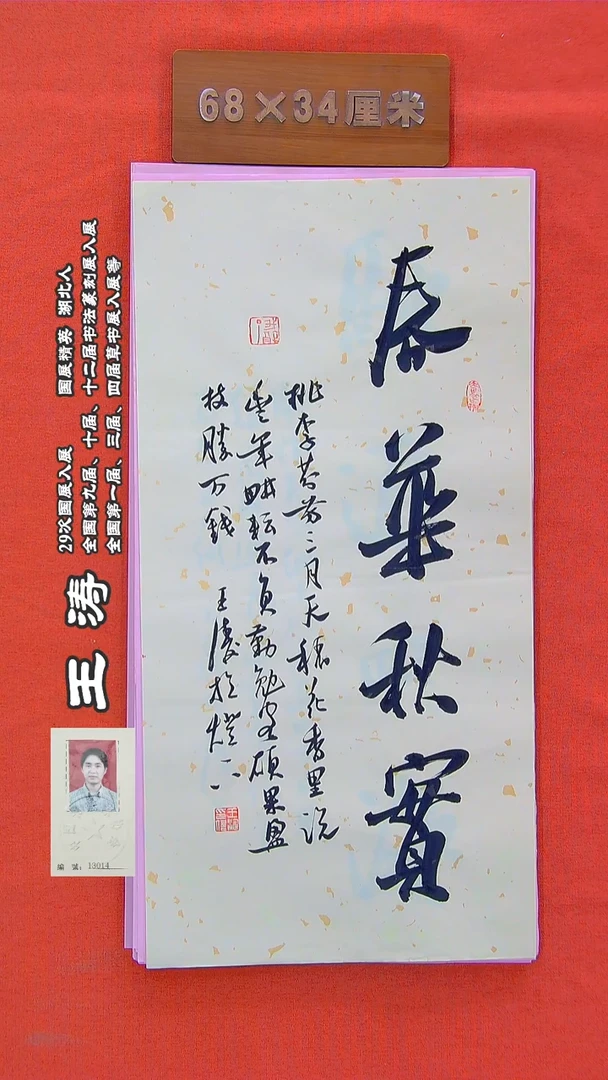 68×34厘米
春華秋實
桃李芬芳三月天稻花香里說
豐年畊耘不負勤勉客碩果盈
枝勝万錢 王濤於燈下
王涛
29次国展入展 国展精英 湖北人
全国第九届、十届、十二届书法篆刻展入展
全国第一届、三届、四届草书展入展等
编号：13014